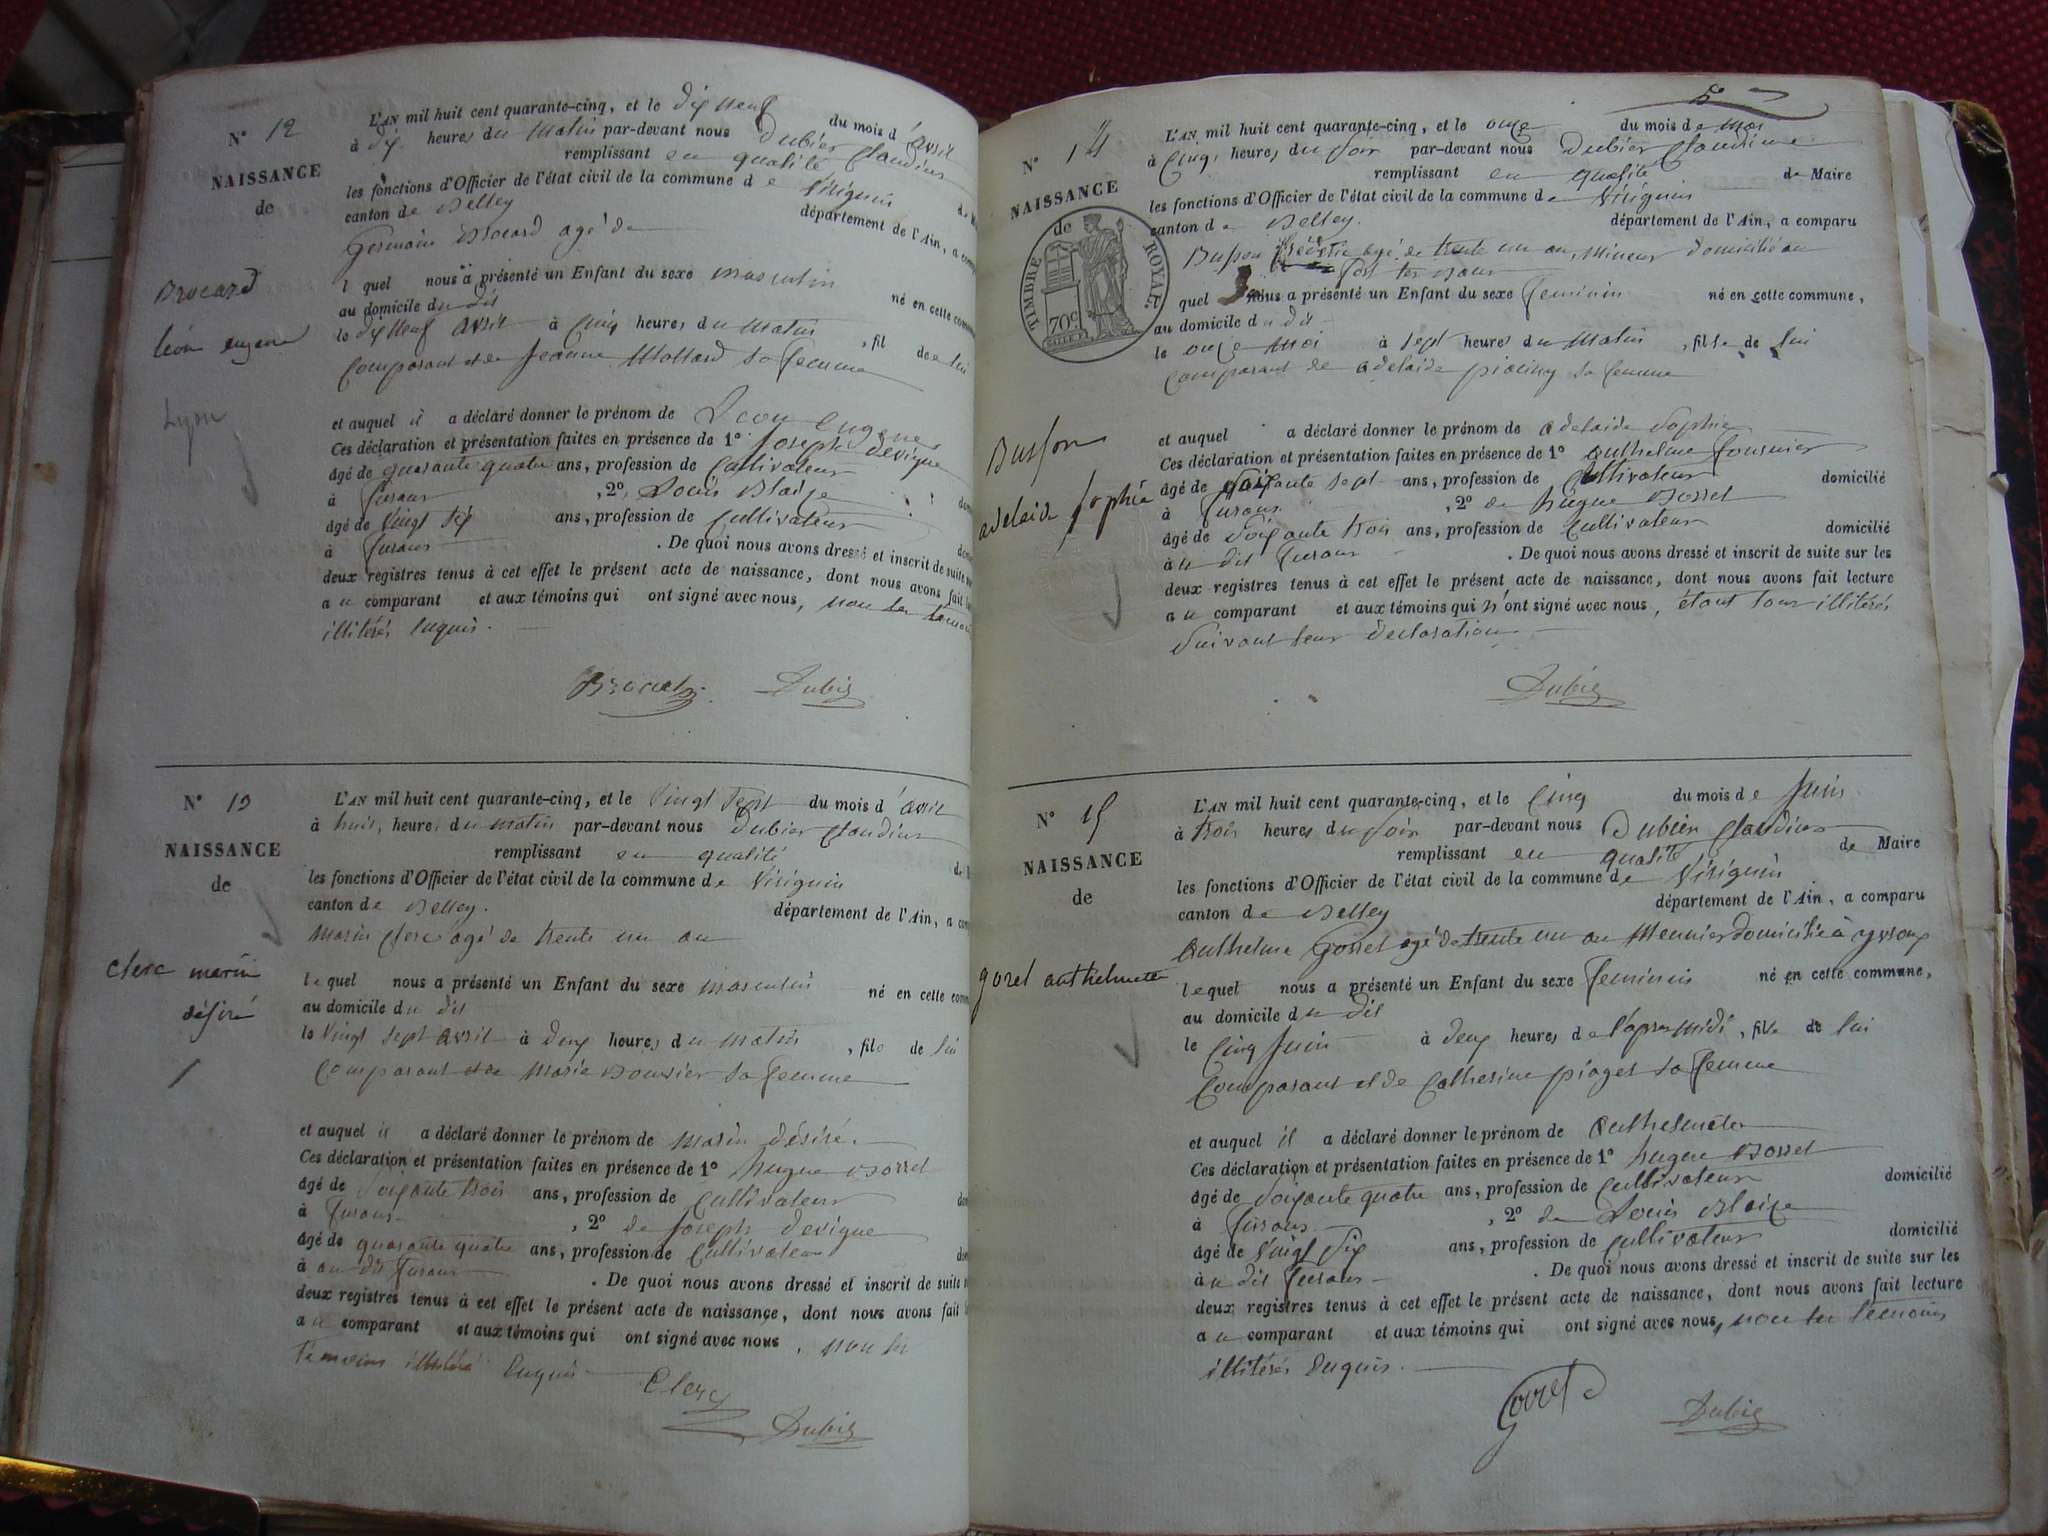 N° 12
NAISSANCE
de
Brocard
léon eugene
Lyon
L'AN mil huit cent quarante-cinq, et le dix neuf du mois d'avril
à dix heures du matin par-devant nous Dubier Claudius
remplissant en qualité de M
les fonctions d'Officier de l'état civil de la commune de Virignin
canton de Belley département de l'Ain, a com
Germain Brocard agé de
l quel nous a présenté un Enfant du sexe masculin
au domicile du dit né en cette com
le dix neuf avril à cinq heures du matin, fil de lui
Comparant et de Jeanne Mollard sa femme
et auquel il a déclaré donner le prénom de Léon Eugene
Ces déclaration et présentation faites en présence de 1° Joseph Devigne
âgé de quarante quatre ans, profession de Cultivateur
à furans , 2° Louis Blaize dom
âgé de vingt six ans, profession de Cultivateur
à furans . De quoi nous avons dressé et inscrit de suite
deux registres tenus à cet effet le présent acte de naissance, dont nous avons fait
au comparant et aux témoins qui ont signé avec nous, non les témoins
illitérés enquis.
Brocard Dubier
N° 13
NAISSANCE
de
Clerc marin
désiré
L'AN mil huit cent quarante-cinq, et le vingt sept du mois d'avril
à huit heures du matin par-devant nous Dubier Claudius
remplissant en qualité de
les fonctions d'Officier de l'état civil de la commune de Virignin
canton de Belley. département de l'Ain, a com
Marin Clerc agé de trente un an
lequel nous a présenté un Enfant du sexe masculin né en cette com
au domicile du dit
le vingt sept avril à deux heures du matin, fils de lui
Comparant et de Marie Bouvier sa femme
et auquel il a déclaré donner le prénom de Marin Désiré.
Ces déclaration et présentation faites en présence de 1° hugue Borret
âgé de soixante trois ans, profession de Cultivateur dom
à furans , 2° de Joseph Devigne
âgé de quarante quatre ans, profession de Cultivateur dom
à au dit furans . De quoi nous avons dressé et inscrit de suite
deux registres tenus à cet effet le présent acte de naissance, dont nous avons fait
au comparant et aux témoins qui ont signé avec nous, non les
témoins illitérés enquis
Clerc
Dubier
5
N° 14
NAISSANCE
de
TIMBRE ROYAL
70c
Buffon
adelaide sophie
L'AN mil huit cent quarante-cinq, et le onze du mois de mai
à cinq heures du soir par-devant nous Dubier Claudius
remplissant en qualité de Maire
les fonctions d'Officier de l'état civil de la commune de Virignin
canton de Belley. département de l'Ain, a comparu
Buffon agé de trente un an, Mineur domicilié au
quel nous a présenté un Enfant du sexe feminin né en cette commune,
au domicile du dit
le onze Mai à sept heures du matin, fille de lui
Comparant de adelaide sa femme
et auquel a déclaré donner le prénom de adelaide Sophie
Ces déclaration et présentation faites en présence de 1° anthelme fournier
âgé de soixante sept ans, profession de Cultivateur domicilié
à furans , 2° de hugue Borret
âgé de soixante trois ans, profession de Cultivateur domicilié
à u dit furans . De quoi nous avons dressé et inscrit de suite sur les
deux registres tenus à cet effet le présent acte de naissance, dont nous avons fait lecture
au comparant et aux témoins qui n'ont signé avec nous, étant tous illitérés
suivant leur déclaration
Dubier
N° 15
NAISSANCE
de
goret anthelmette
L'AN mil huit cent quarante-cinq, et le cinq du mois de Juin
à trois heures du soir par-devant nous Dubier Claudius
remplissant en qualité de Maire
les fonctions d'Officier de l'état civil de la commune de Virignin
canton de Belley département de l'Ain, a comparu
Anthelme Gorret agé de trente un an Meunier domicilié à
lequel nous a présenté un Enfant du sexe feminin né en cette commune,
au domicile du dit
le cinq Juin à deux heures de l'apres midi, fille de lui
Comparant et de Catherine piaget sa femme
et auquel il a déclaré donner le prénom de
Ces déclaration et présentation faites en présence de 1° hugue Borret
âgé de soixante quatre ans, profession de Cultivateur domicilié
à furans , 2° de Louis Blaize
âgé de vingt six ans, profession de Cultivateur domicilié
à u dit furans . De quoi nous avons dressé et inscrit de suite sur les
deux registres tenus à cet effet le présent acte de naissance, dont nous avons fait lecture
au comparant et aux témoins qui ont signé avec nous, non les témoins
illitérés enquis.
Gorret
Dubier